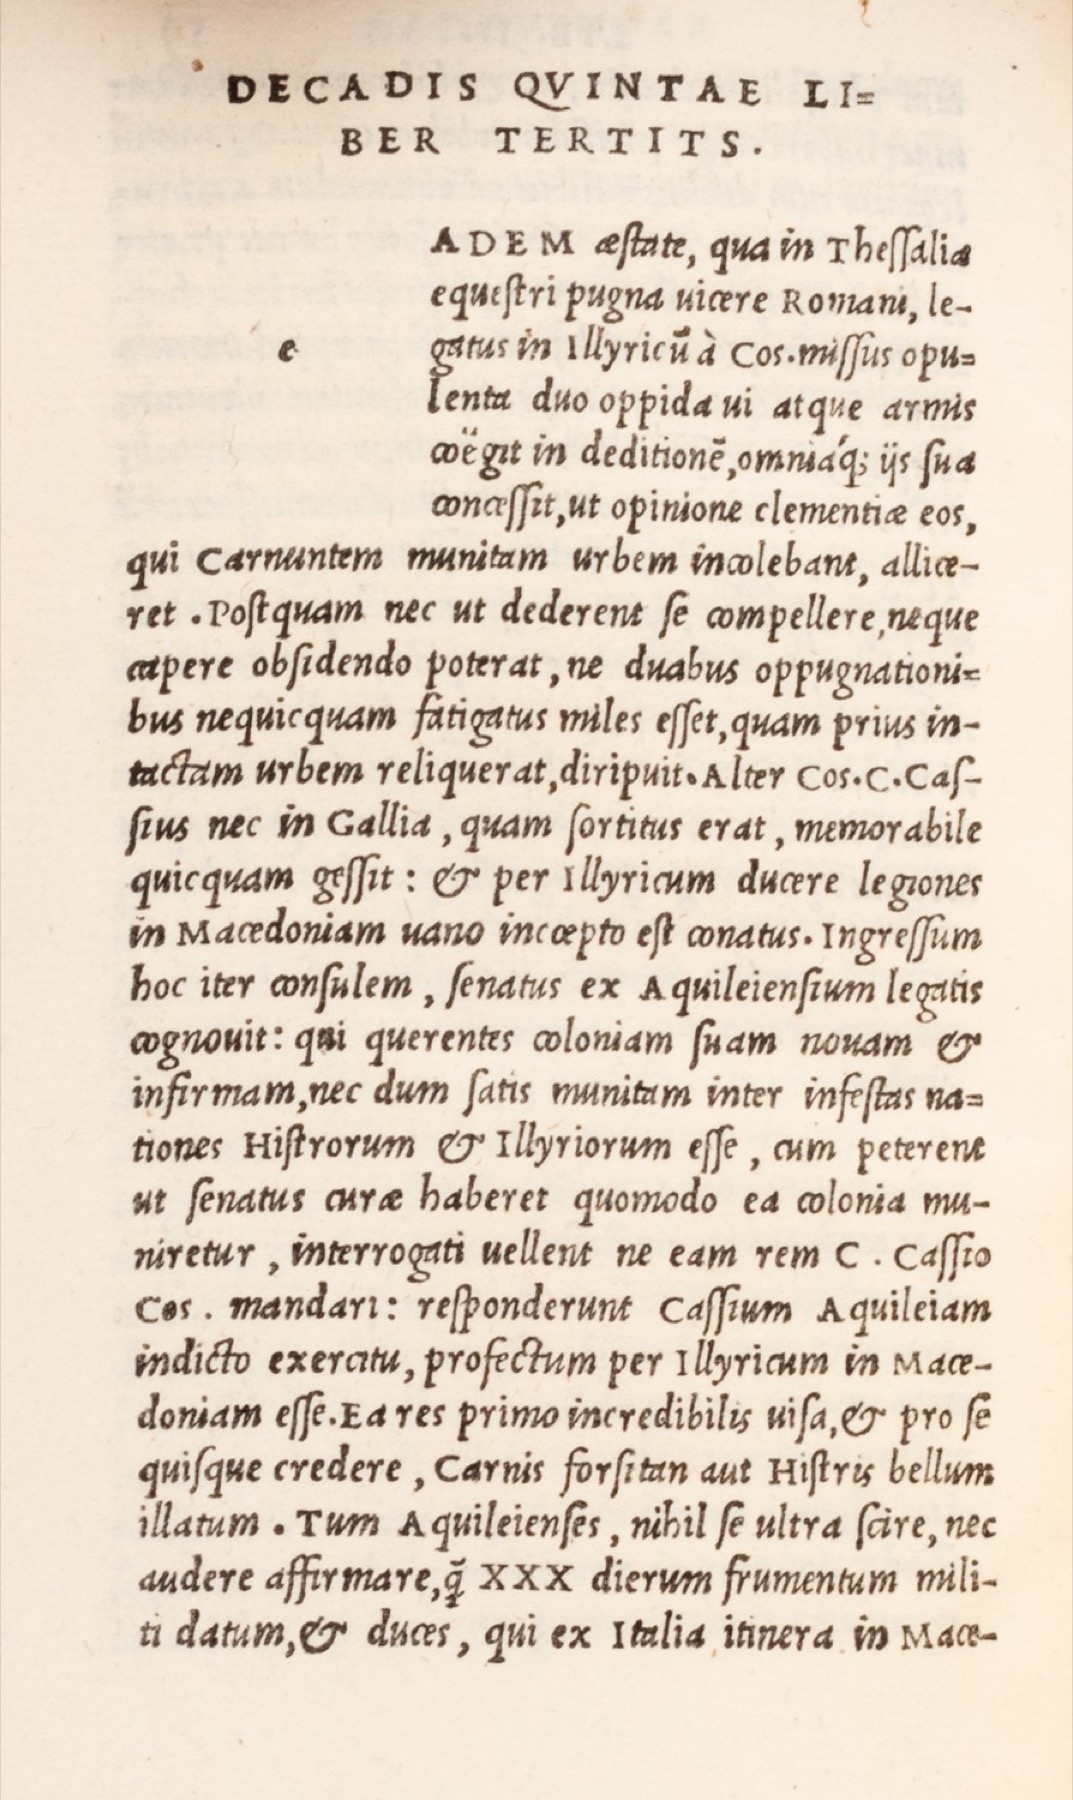 DECADIS QVINTAE LI=
BER TERTITS.
ADEM æſtate, qua in Theſſalia
equeſtri pugna uicere Romani, le-
e gatus in Illyricū à Cos.miſſus opu=
lenta duo oppida ui atque armis
coëgit in deditionē,omniáq; ijs ſua
conceſſit,ut opinione clementiæ eos,
qui Carnuntem munitam urbem incolebant, allice-
ret .Poſtquam nec ut dederent ſe compellere,neque
capere obſidendo poterat,ne duabus oppugnationi=
bus nequicquam fatigatus miles eſſet,quam prius in-
tactam urbem reliquerat,diripuit.Alter Cos.C.Caſ-
ſius nec in Gallia ,quam ſortitus erat, memorabile
quicquam geſſit: & per Illyricum ducere legiones
in Macedoniam uano incœpto eſt conatus. Ingreſſum
hoc iter conſulem , ſenatus ex Aquileienſium legatis
cognouit: qui querentes coloniam ſuam nouam &
infirmam,nec dum ſatis munitam inter infeſtas na=
tiones Hiſtrorum & Illyriorum eſſe , cum peterent
ut ſenatus curæ haberet quomodo ea colonia mu-
niretur , interrogati uellent ne eam rem C . Caſſio
Cos . mandari: reſponderunt Caſſium Aquileiam
indicto exercitu, profectum per Illyricum in Mace-
doniam eſſe.Ea res primo incredibilis uiſa,& pro ſe
quiſque credere , Carnis forſitan aut Hiſtris bellum
illatum . Tum Aquileienſes , nihil ſe ultra ſcire, nec
audere affirmare,ꝙ̃ XXX dierum frumentum mili-
ti datum,& duces, qui ex Italia itinera in Mace-